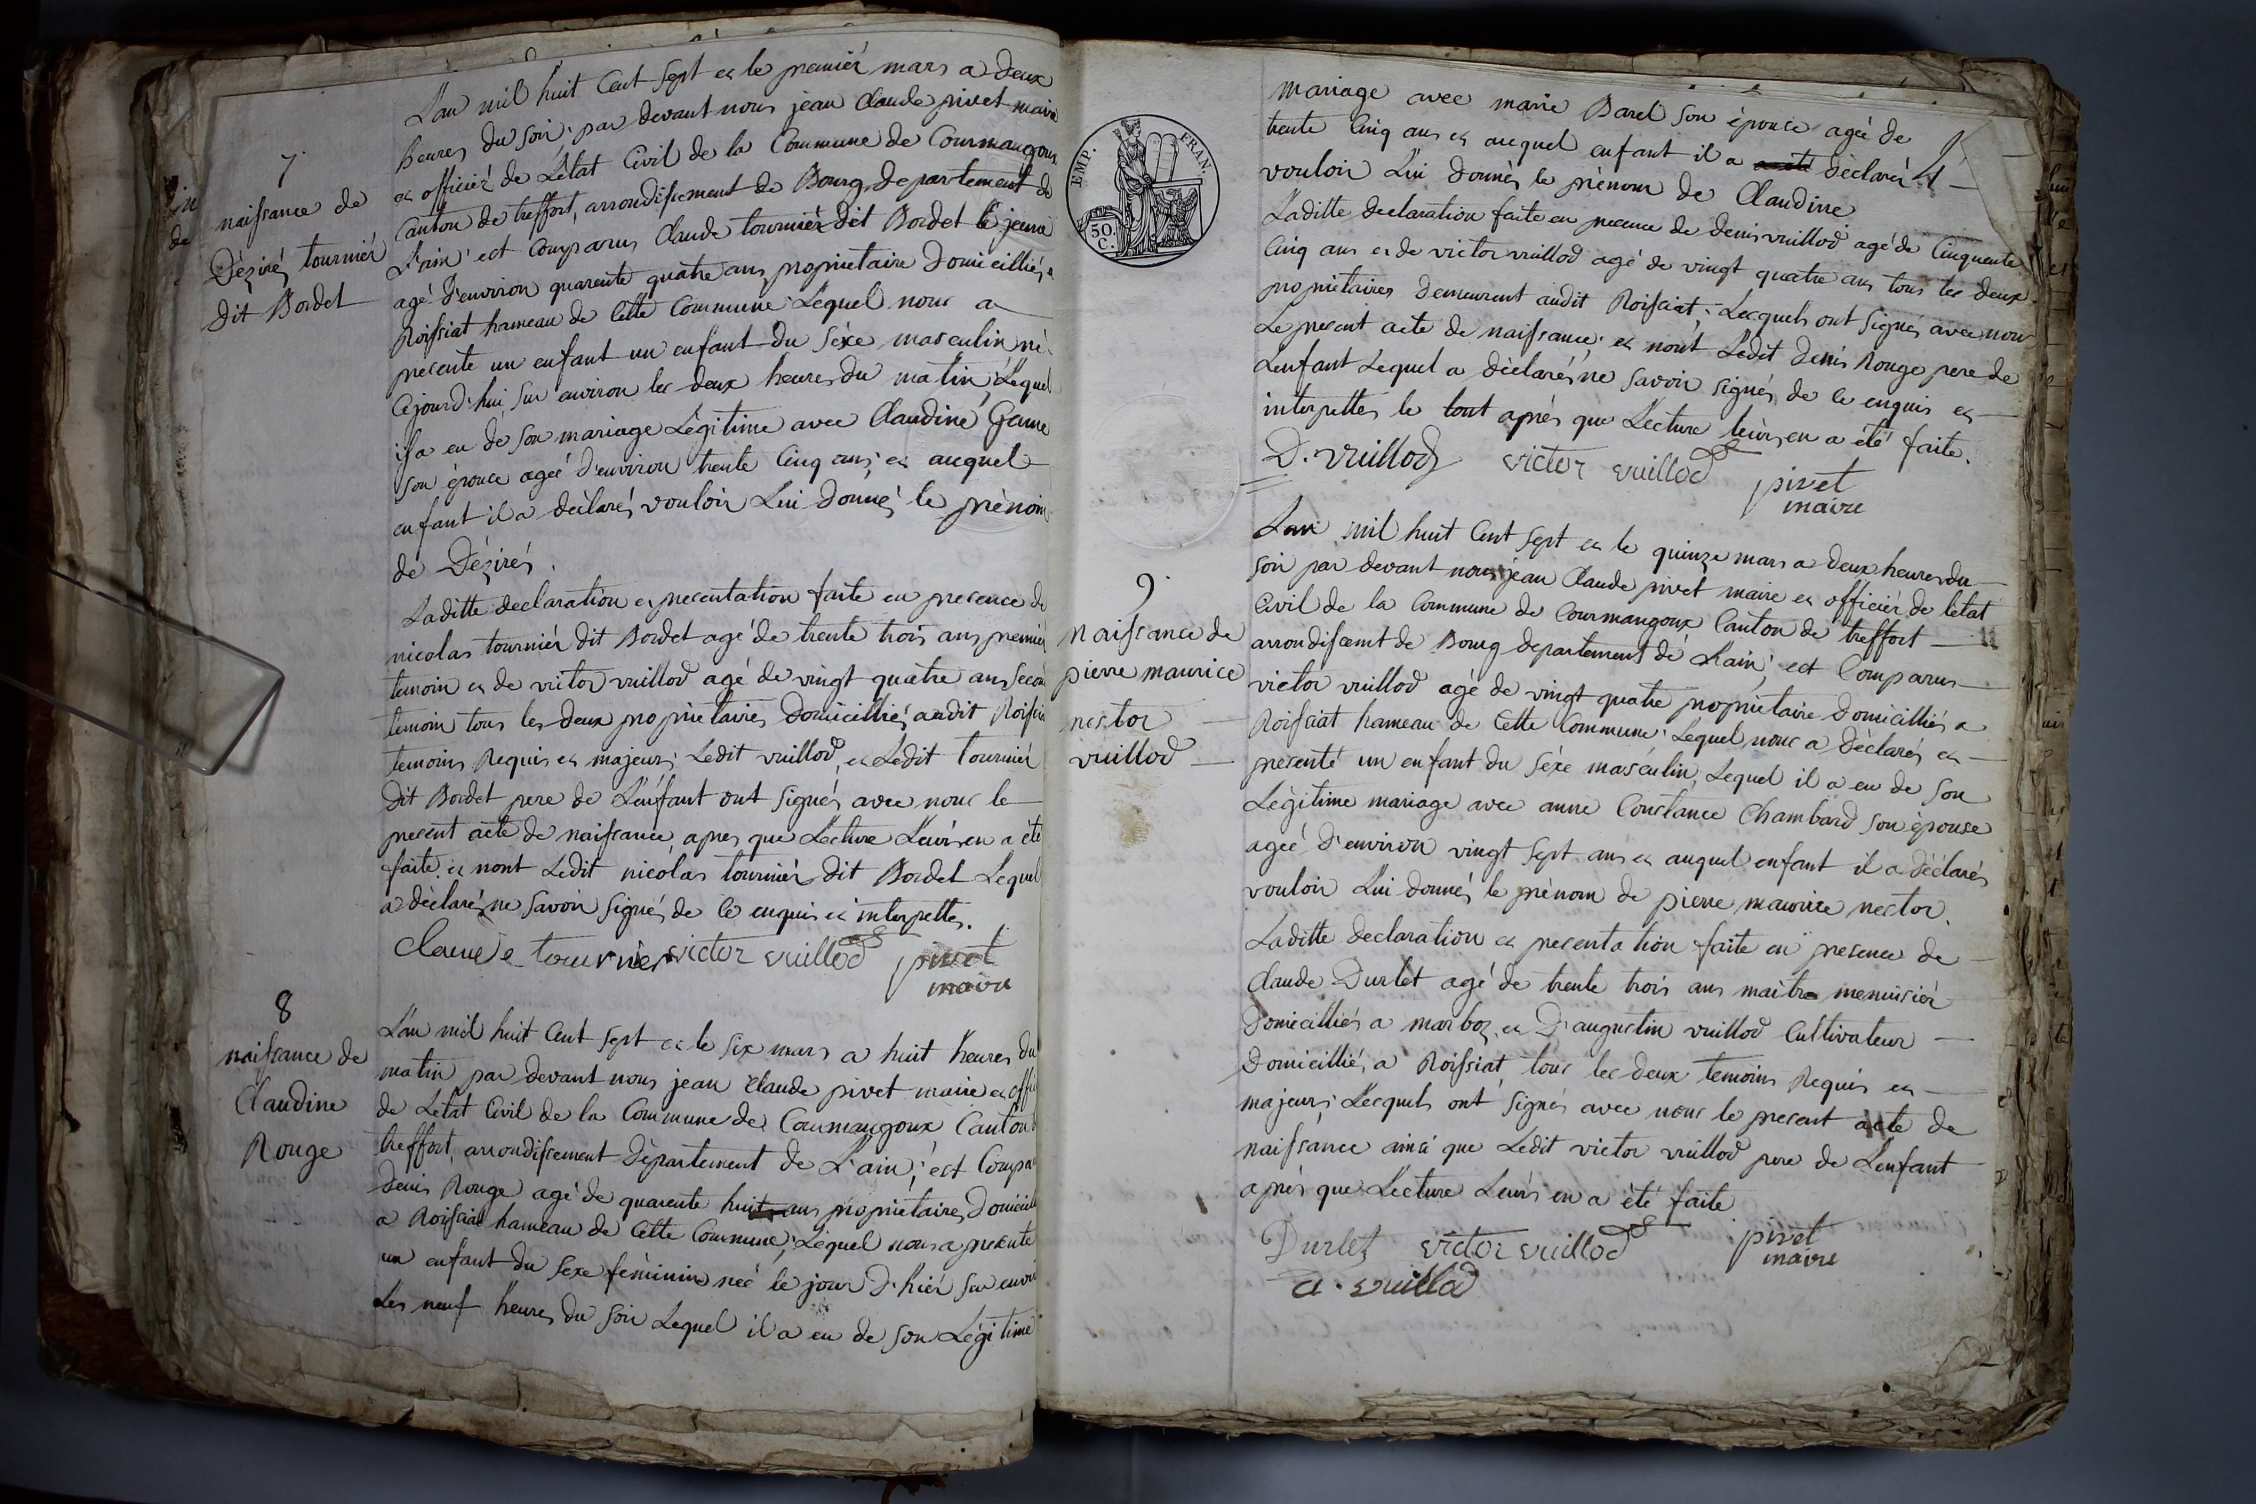 7.
naissance de
Dèziré tourniér
dit Bordet
L'an mil huit Cent Sept et le premiér mars a deux
heures du soir; par devant nous jean Claude pivet maire
et officiér de L'état Civil de la Commune de Courmangoux
Canton de treffort, arrondissement de Bourg, departement de
L'ain; est Comparus Claude tourniér dit Bordet le jeune
agé d'environ quarente quatre ans propriétaire domicilliés a
Roissiat hameau de Cette Commune; Lequel nous a
presenté un enfant un enfant du sèxe masculin né
Cejourd'hui sur environ les deux heures du matin; Lequel
il a eu de son mariage Légitime avec Claudine Game
son épouce agéé d'environ trente Cinq ans; et auquel
enfant il a dèclarés vouloir Lui donnés le prènom
de Dézirés.
Laditte declaration et presentation faite en presence de
nicolas tourniér dit Bordet agé de trente trois ans premiér
temoin et de victor vuillod agé de vingt quatre ans Secon
temoin tous les deux propriétaires Domicilliés audit Roissia
temoins Requis et majeurs; Ledit vuillod, et Ledit tourniér
dit Bordet pere de L'enfant ont signés avec nous le
present acte de naissance, apres que Lecture Leurs en a été
faite. et nont Ledit nicolas tourniér dit Bordet Lequel
a dèclaré ne savoir signés de Ce enquis et interpelles.
Claude tournier victor vuillod pivet
maire
8
naissance de
Claudine
Rouge
L'an mil huit Cent Sept et le six mars a huit heures du
matin par devant nous jean Claude pivet maire et offici
de Letat Civil de la Commune de Courmangoux Canton d
treffort, arrondissement dèpartement de L'ain; est Compa
Denis Rouge agé de quarente huit ans propriétaires domicilli
a Roissiat hameau de Cette Commune; Lequel nous a presenté
un enfant du sexe feminin neé le jour d'hiér sur envir
Les neuf heures du soir Lequel il a eu de son Légitime
EMP. FRAN.
50.
C.
mariage avec marie Barel son épouce agéé de
trente Cinq ans et auquel enfant il a dèclarés
vouloir Lui donnés le prènom de Claudine
Laditte declaration faite en presence de denis vuillod agé de Cinquente
Cinq ans et de victor vuillod agé de vingt quatre ans tous les deux
propriétaires demeurent audit Roissiat; Lesquels ont signés avec nous
Le present acte de naissance; et nont Ledit Denis Rouge pere de
Lenfant Lequel a dèclarés ne savoir signés, de Ce enquis et
interpelles le tout aprés que Lecture leurs en a été faite.
D. vuillod victor vuillod pivet
maire
9.
Naissance de
pierre maurice
nestor
vuillod
L'an mil huit Cent Sept et le quinze mars a deux heures du
soir par devant nous jean Claude pivet maire et officiér de létat
Civil de la Commune de Courmangoux Canton de treffort
arrondissemt de Bourg departement de Lain; est Comparus
victor vuillod agé de vingt quatre propriétaire domicilliés a
Roissiat hameau de Cette Commune; Lequel nous a dèclarés et
presenté un enfant du sèxe masculin, Lequel il a eu de son
Légitime mariage avec anne Constance Chambard son épouse
agéé d'environ vingt sept ans et auquel enfant il a dèclarés
vouloir Lui donnés le prènom de pierre maurice nestor.
Laditte declaration et presentation faite en presence de
Claude Durlet agé de trente trois ans maitre menuisiér
Domicilliés a marboz, et D'augustin vuillod Cultivateur
Domicilliés a Roissiat tous les deux temoins Requis et
majeurs; Lesquels ont signés avec nous le present acte de
naissance ainsi que Ledit victor vuillod pere de L'enfant
aprés que Lecture Leurs en a été faite
Durlet victor vuillod pivet
maire
a. vuillod